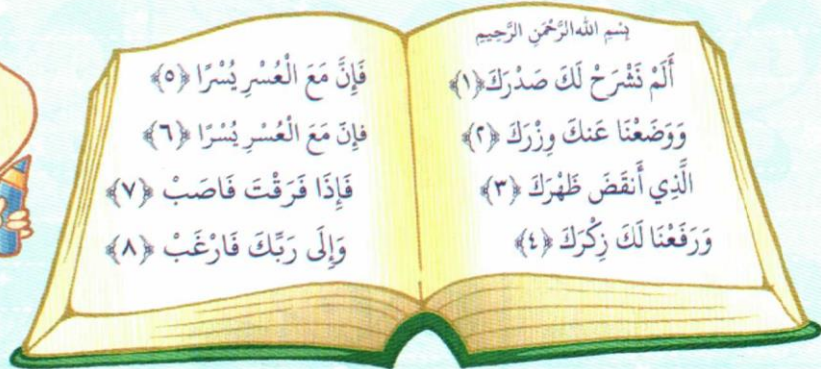 بِسْمِ اللهِ الرَّحْمَنِ الرَّحِيمِ
أَلَمْ نَشْرَحْ لَكَ صَدْرَكَ ﴿١﴾
وَوَضَعْنَا عَنكَ وِزْرَكَ ﴿٢﴾
الَّذِي أَنقَضَ ظَهْرَكَ ﴿٣﴾
وَرَفَعْنَا لَكَ زِكْرَكَ ﴿٤﴾
فَإِنَّ مَعَ الْعُسْرِ يُسْرًا ﴿٥﴾
فإِنَ مَعَ الْعُسْرِ يُسْرًا ﴿٦﴾
فَإِذَا فَرَقْتَ فَاصَبْ ﴿٧﴾
وَإِلَى رَبِّكَ فَارْغَبْ ﴿٨﴾